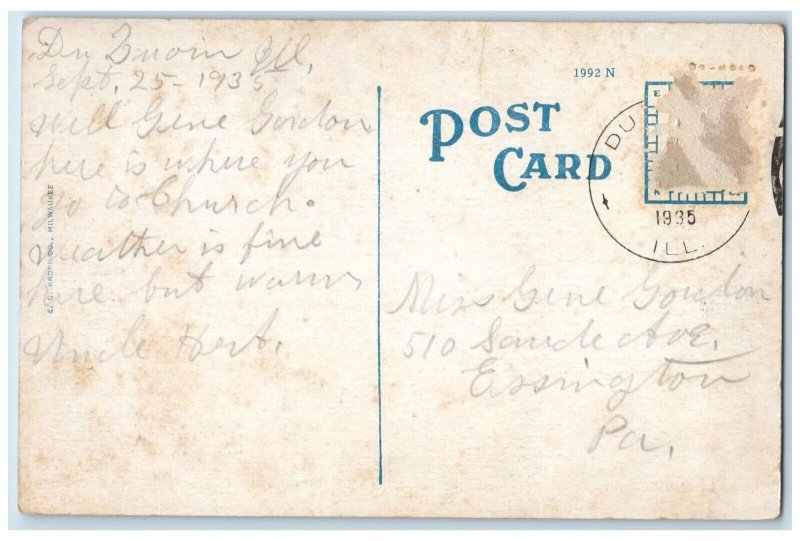 Du Quoin Ill,
Sept. 25 - 1935
Well Gene Gordon
here is where you
go to Church.
Weather is fine
here but warm
Uncle Hert.
E. C. KROPP CO., MILWAUKEE
1992 N
POST
CARD
DU
1935
ILL.
Miss Gene Gordon
510 Saude Ave.
Essington
Pa.